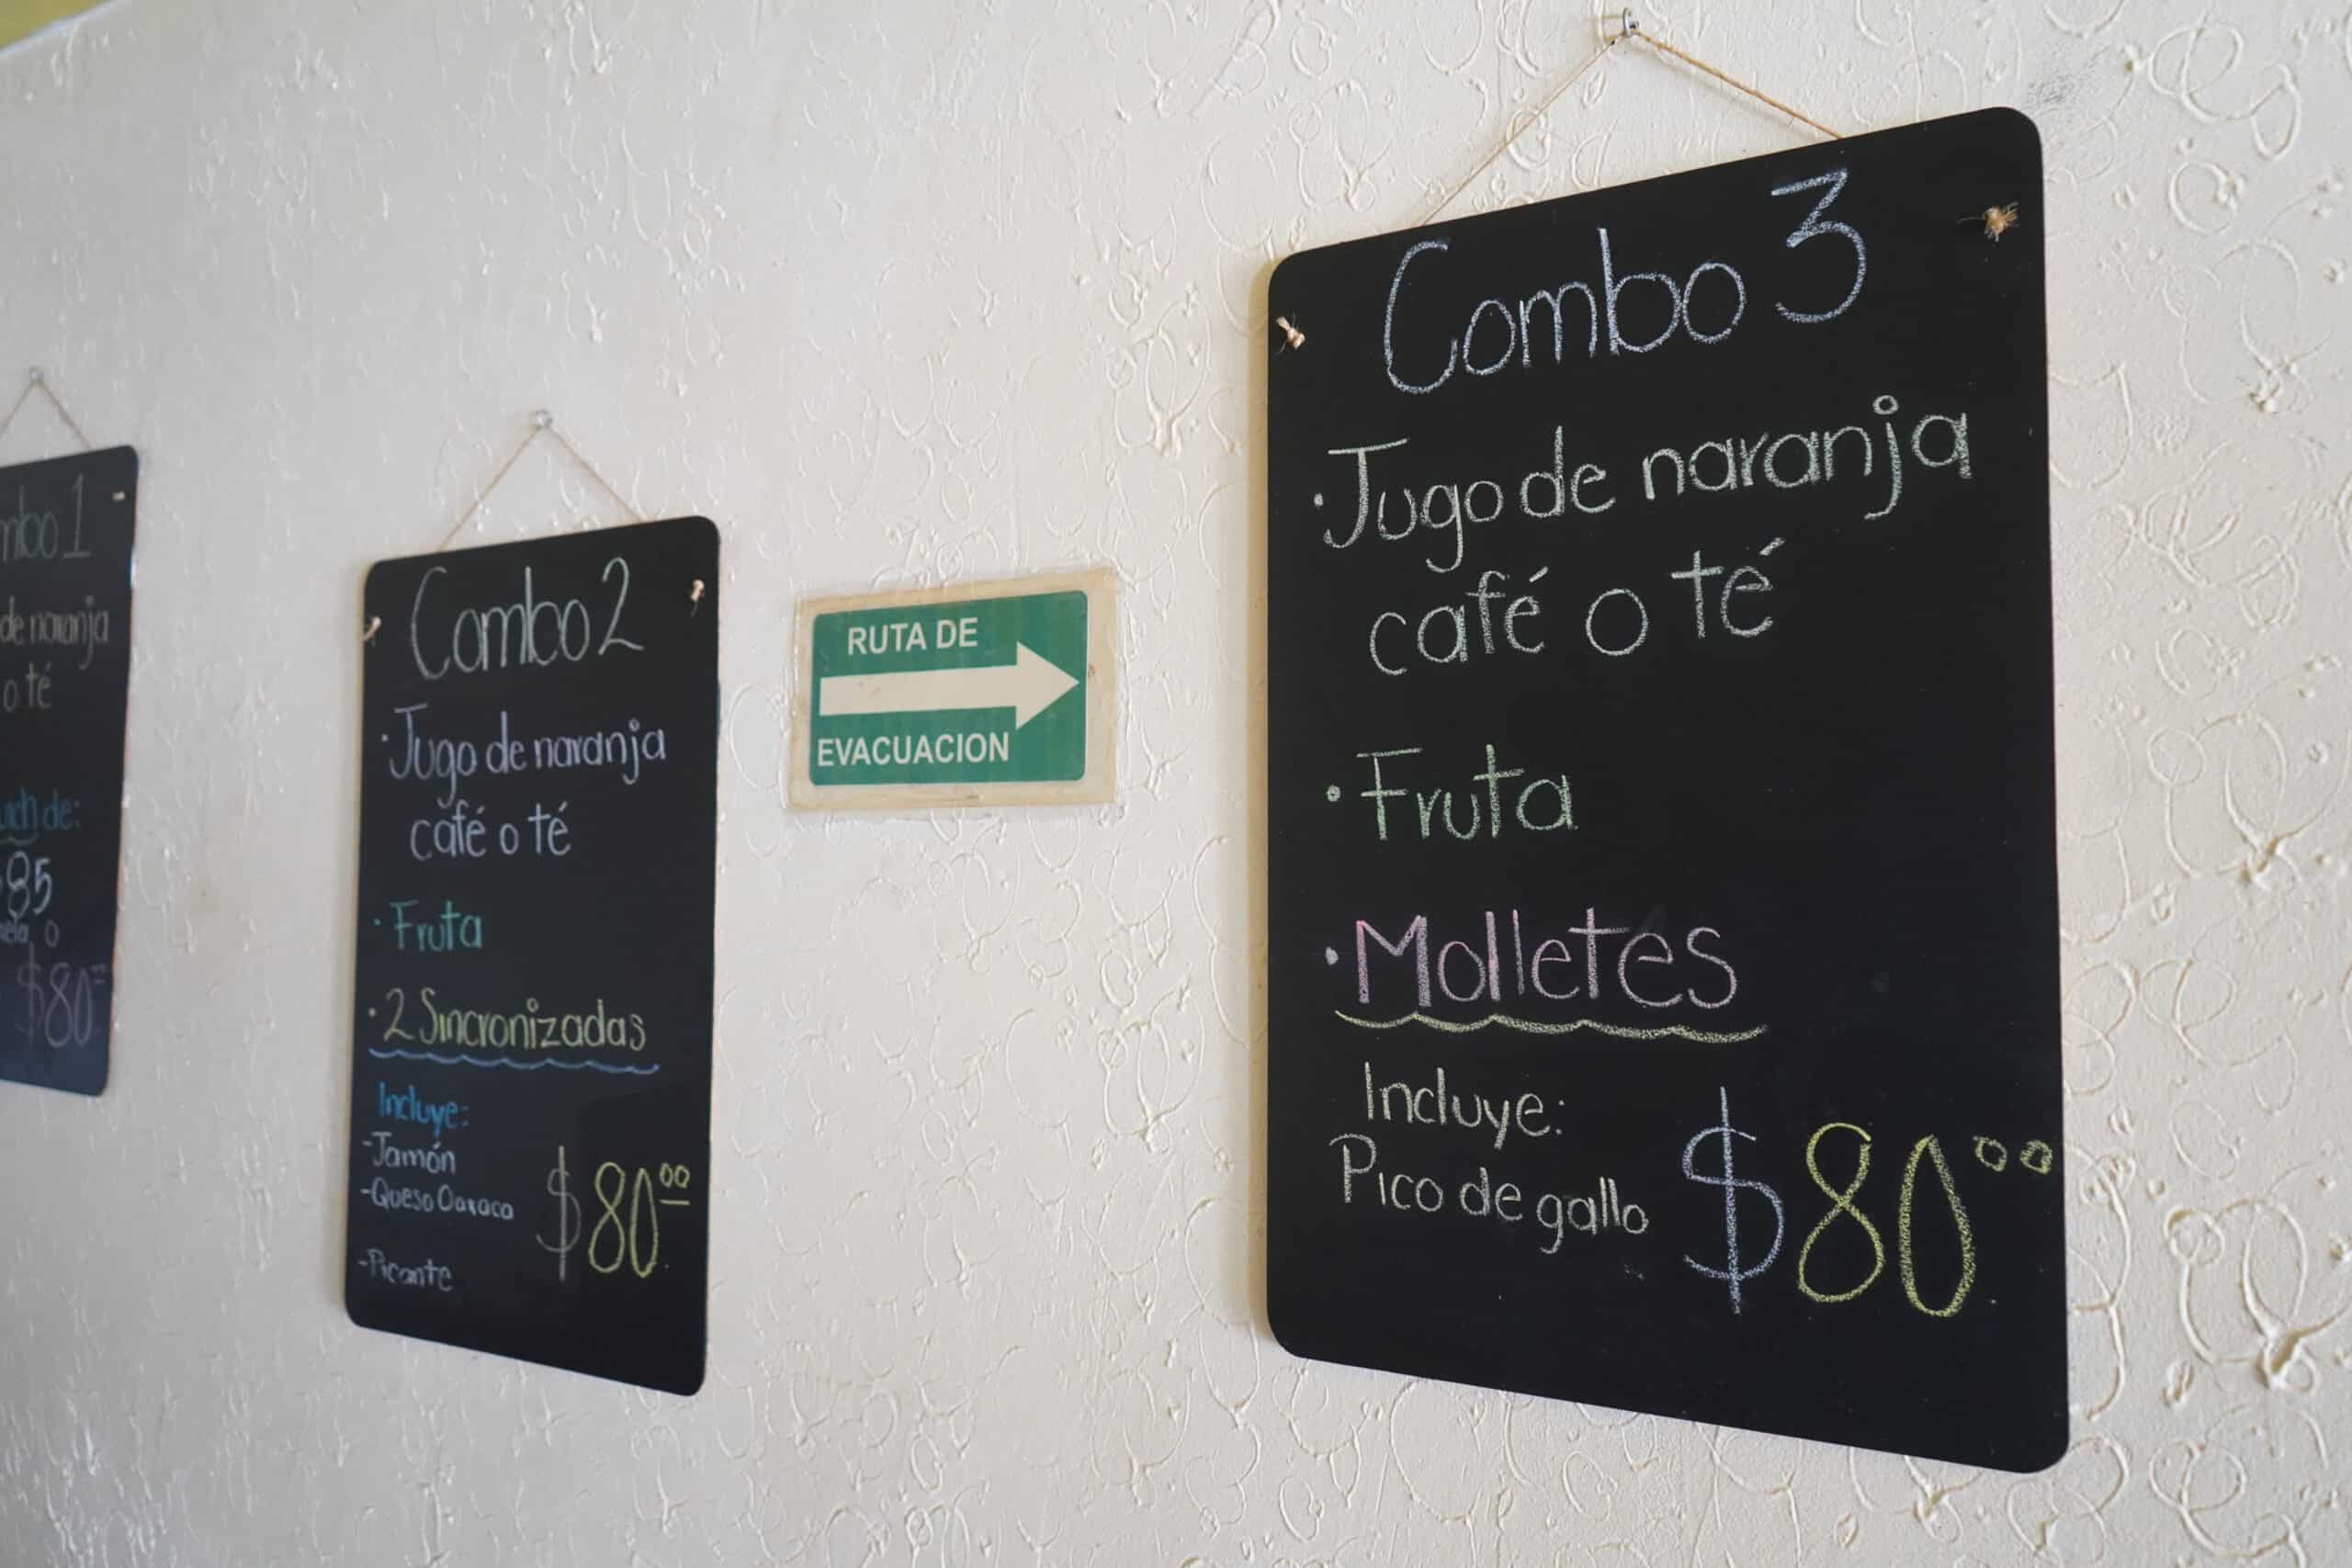 1
de naranja
o té
de:
85
o
$80
Combo 2
·Jugo de naranja
café o té
·Fruta
·2 Sincronizadas
Incluye:
-Jamón
-Queso Oaxaca
-Picante
$80.00
RUTA DE
EVACUACION
Combo 3
·Jugo de naranja
café o té
·Fruta
·Molletes
Incluye:
Pico de gallo
$80.00